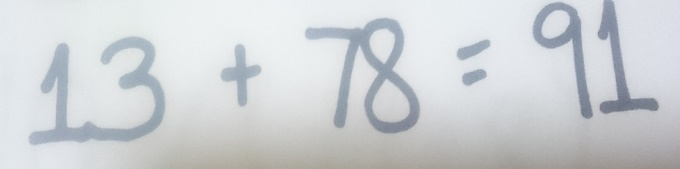 13 + 78 = 91